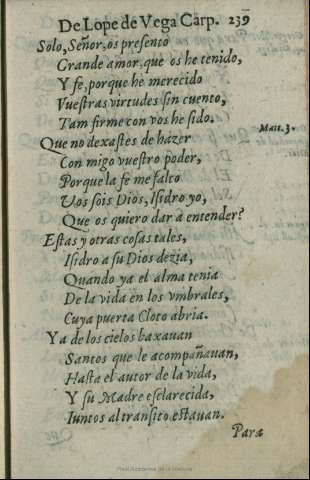 De Lope de Vega Carp. 239
Solo, Señor, os presento
Grande amor, que os he tenido,
Y fe, porque he merecido
Vuestras virtudes sin cuento,
Tam firme con vos he sido.
Matt. 3.
Que no dexastes de hazer
Con migo vuestro poder,
Porque la fe me falto
Vos sois Dios, Isidro yo,
Que os quiero dar a entender?
Estas y otras cosas tales,
Isidro a su Dios dezia,
Quando ya el alma tenia
De la vida en los vmbrales,
Cuya puerta Cloto abria.
Ya de los cielos baxauan
Santos que le acompañauan,
Hasta el autor de la vida,
Y su Madre esclarecida,
Iuntos al transito estauan.
Para
Real Academia de la Historia